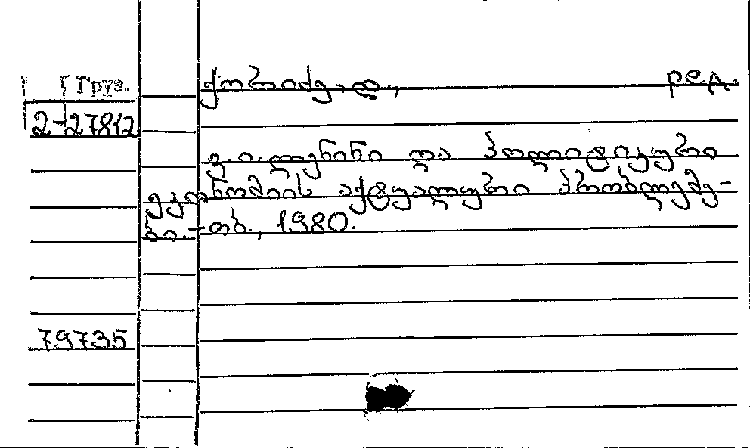 Груз.
2-27812
ქორიძე, დ., ред.
ვ.ი. ლენინი და პოლიტიკური
ეკონომიის აქტუალური პრობლემე-
ბი.-თბ., 1980.
79735